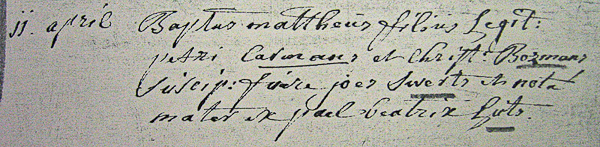 11. april Baptus mattheus filius Legit:
petri Casmans et Christ: Bosmans
suscip: fuere joes Swerts et nota
mater ex pael beatrix Luts.